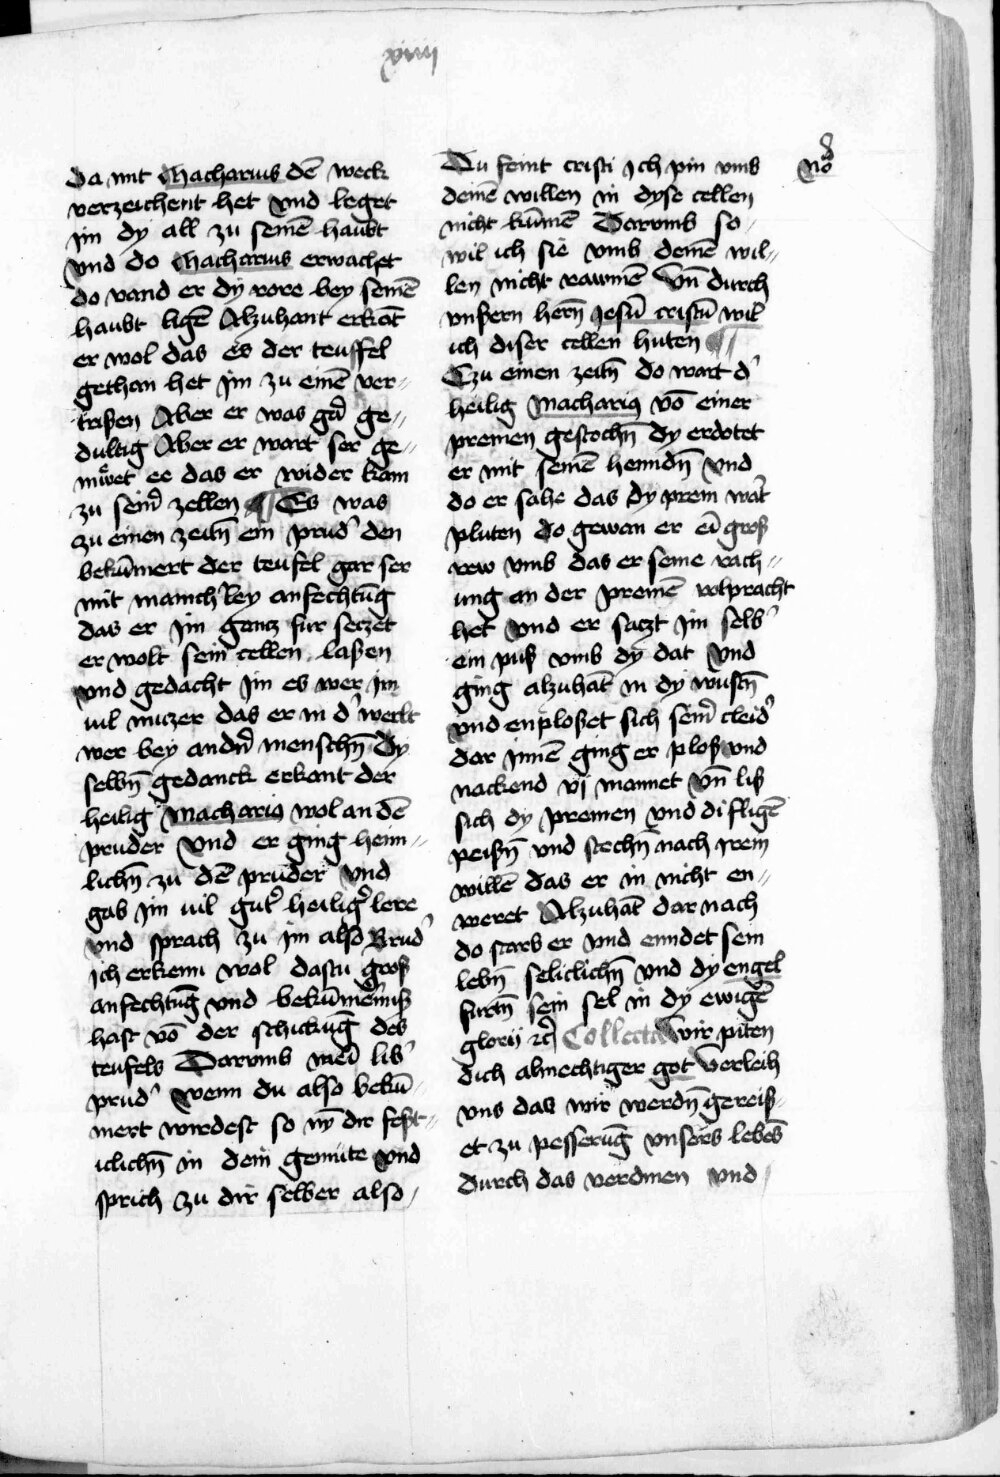 xviiij
da mit Macharius dē weck
verzeichent het vnd leget
im dy all zu seinē haubt
vnd do Macharius erwachet
do vand er dy rore bey seinē
haubt ligē Alzuhant erkāt
er wol das es der teuffel
gethan het im zu einē ver-
trißen Aber er was gā ge-
dultig Aber er wart ser ge-
müet ee das er wider kam
zu seinʼ zellen ¶ Es was
zu einen zeitn̄ ein prudʼ den
bekūmert der teufel gar ser
mit manchʼley anfechtūg
das er im gancz fur seczet
er wolt sein cellen laßen
vnd gedacht im es wer im
uil nuczer das er in dʼ werlt
wer bey andn̄ menschn̄ dy
selbn̄ gedanck erkant der
heilig Macharius wol an dē
pruder vnd er ging heim-
lichn̄ zu dē pruder vnd
gab im uil gutʼ heiligʼ lere
vnd sprach zu im also Brudʼ
ich erkenn wol dastu groß
anfechtūg vnd bekūmernuß
hast vō der schickūg des
teufels Darvmb mei libʼ
prudʼ wenn du also bekū-
mert wirdest so ny dir fest-
iclichn̄ in dein gemüte vnd
sprich zu dir selber also
Du feint cristi ich pin vmb
deinē willen in dyse cellen
nicht kūmē Darvmb so
wil ich sie vmb deinē wil-
len nicht rawmē Vn̄ durch
vnßern hern̄ Jesū cristū wil
ich diser cellen huten ¶
Czu einen zeitn̄ do wart dʼ
heilig Macharius vō einer
premen gestochn̄ dy erdotet
er mit seinē henndn̄ vnd
do er sahe das dy prem wāt
pluten do gewan er ei groß
rew vmb das er seine rach-
ung an der premē volpracht
het vnd er saczt im selbʼ
ein puß vmb dy dat vnd
ging alzuhāt in dy wustn̄
vnd enploßet sich seinʼ cleidʼ
dar innē ging er ploß vnd
nackend vj mannet vn̄ liß
sich dy premen vnd di fligē
peißn̄ vnd stechn̄ nach irem
willē das er in nicht en-
weret Alzuhāt dar nach
do starb er vnd enndet sein
lebn̄ seliclichn̄ vnd dy engel
furtn̄ sein sel in dy ewigē
glorij ꝛcʼ Collecta Wir piten
dich almechtiger got verleih
vns das wir werdn̄ gereiß-
et zu pesserūg vnsers lebēs
durch das verdinen vnd